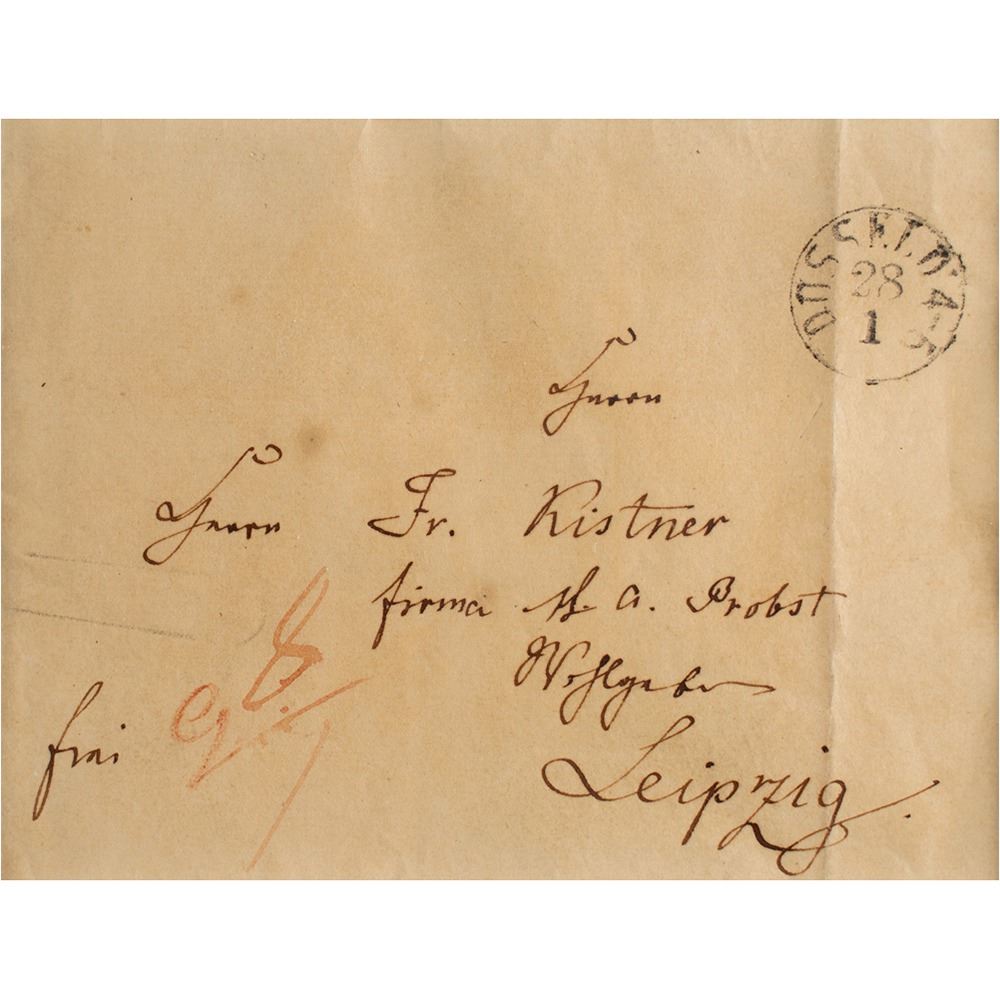 DÜSSELD
4-5
28
1
Herrn
Herrn Fr. Kistner
firma H. A. Probst
Wohlgeborn
frei
Leipzig.